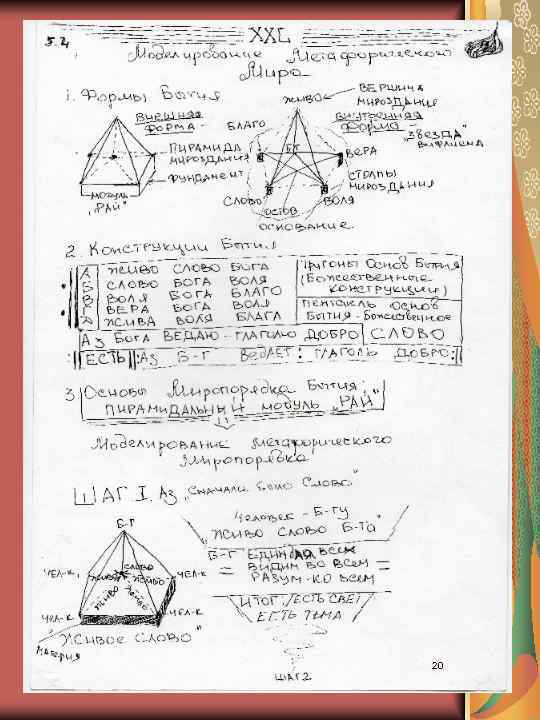 5.2
XXL
Моделирование Метафорического
Мира
1. Формы Бытия
ВНЕШНЯЯ
ФОРМА -
ПИРАМИДА
МИРОЗДАНИЯ
ФУНДАМЕНТ
МОДУЛЬ
„РАЙ"
ЖИВО
ВЕРШИНА
МИРОЗДАНИЯ
ВНУТРЕННЯЯ
ФОРМА -
„ЗВЕЗДА"
ВИФЛИЕМА
БЛАГО
Б-Г
ВЕРА
СТОЛПЫ
МИРОЗДАНИЯ
СЛОВО
ВОЛЯ
ОСТОВ
ОСНОВАНИЕ
2. Конструкции Бытия
А ЖИВО СЛОВО БОГА
Б СЛОВО БОГА ВОЛЯ
В ВОЛЯ БОГА БЛАГО
Г ВЕРА БОГА ВОЛЯ
Д ЖИВА ВОЛЯ БЛАГА
ТРИГОНЫ ОСНОВ БЫТИЯ
(БОЖЕСТВЕННЫЕ
КОНСТРУКЦИИ)
ОСНОВ
БЫТИЯ - БОЖЕСТВЕННОЕ
Аз БОГА ВЕДАЮ - ГЛАГОЛЮ ДОБРО СЛОВО
ЕСТЬ :Аз Б-Г ВЕДАЕТ: ГЛАГОЛЬ ДОБРО:
3. Основы Миропорядка Бытия:
ПИРАМИДАЛЬНЫЙ МОДУЛЬ „РАЙ"
Моделирование метафорического
Миропорядка
ШАГ I. Аз „Сначала было Слово"
Б-Г
ЧЕЛ-К
ЖИВО
СЛОВО
ЖИВО
ЧЕЛ-К
ЖИВО
ЖИВО
ЧЕЛ-К
ЧЕЛ-К
„ЖИВОЕ СЛОВО"
МАТЕРИЯ
Человек - Б-Гу
„ЖИВО СЛОВО Б-Га"
Б-Г ЕДИН ВО ВСЕМ
= ВИДИМ ВО ВСЕМ =
РАЗУМ - КО ВСЕМ
ИТОГ: ЕСТЬ СВЕТ
ЕСТЬ ТЬМА
ШАГ 2
20